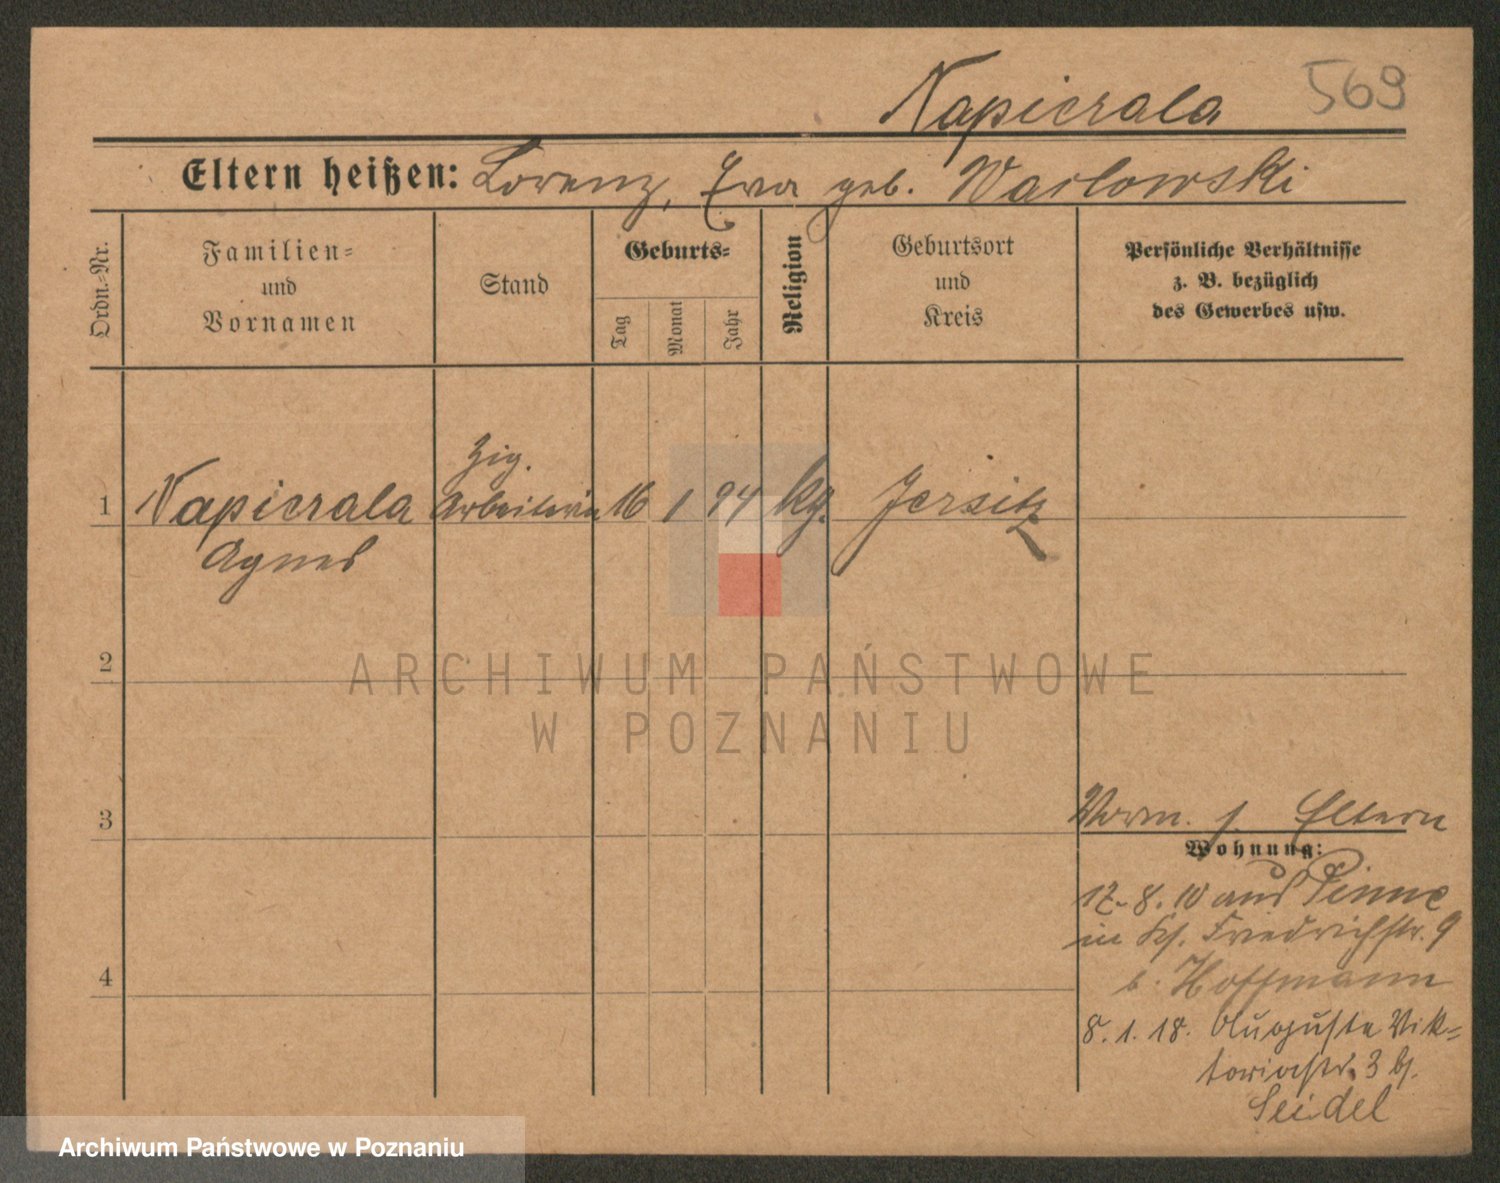 Napierala 569
Eltern heißen: Lorenz, Eva geb. Warlowski
Ordn.=Nr.
Familien=
und
Vornamen
Stand
Geburts=
Tag
Monat
Jahr
Religion
Geburtsort
und
Kreis
Persönliche Verhältnisse
z. B. bezüglich
des Gewerbes usw.
Zig.
1 Napierala Arbeiterin 16 1 94 kg. Jersitz
Agnes
ARCHIWUM PAŃSTWOWE
W POZNANIU
2
3
Vorm. s. Eltern
Wohnung:
17.8.10 aus Pinne
in Friedrichstr. 9
b. Hoffmann
4
8.1.18. Auguste Vik=
toriastr. 3 b.
Seidel
Archiwum Państwowe w Poznaniu